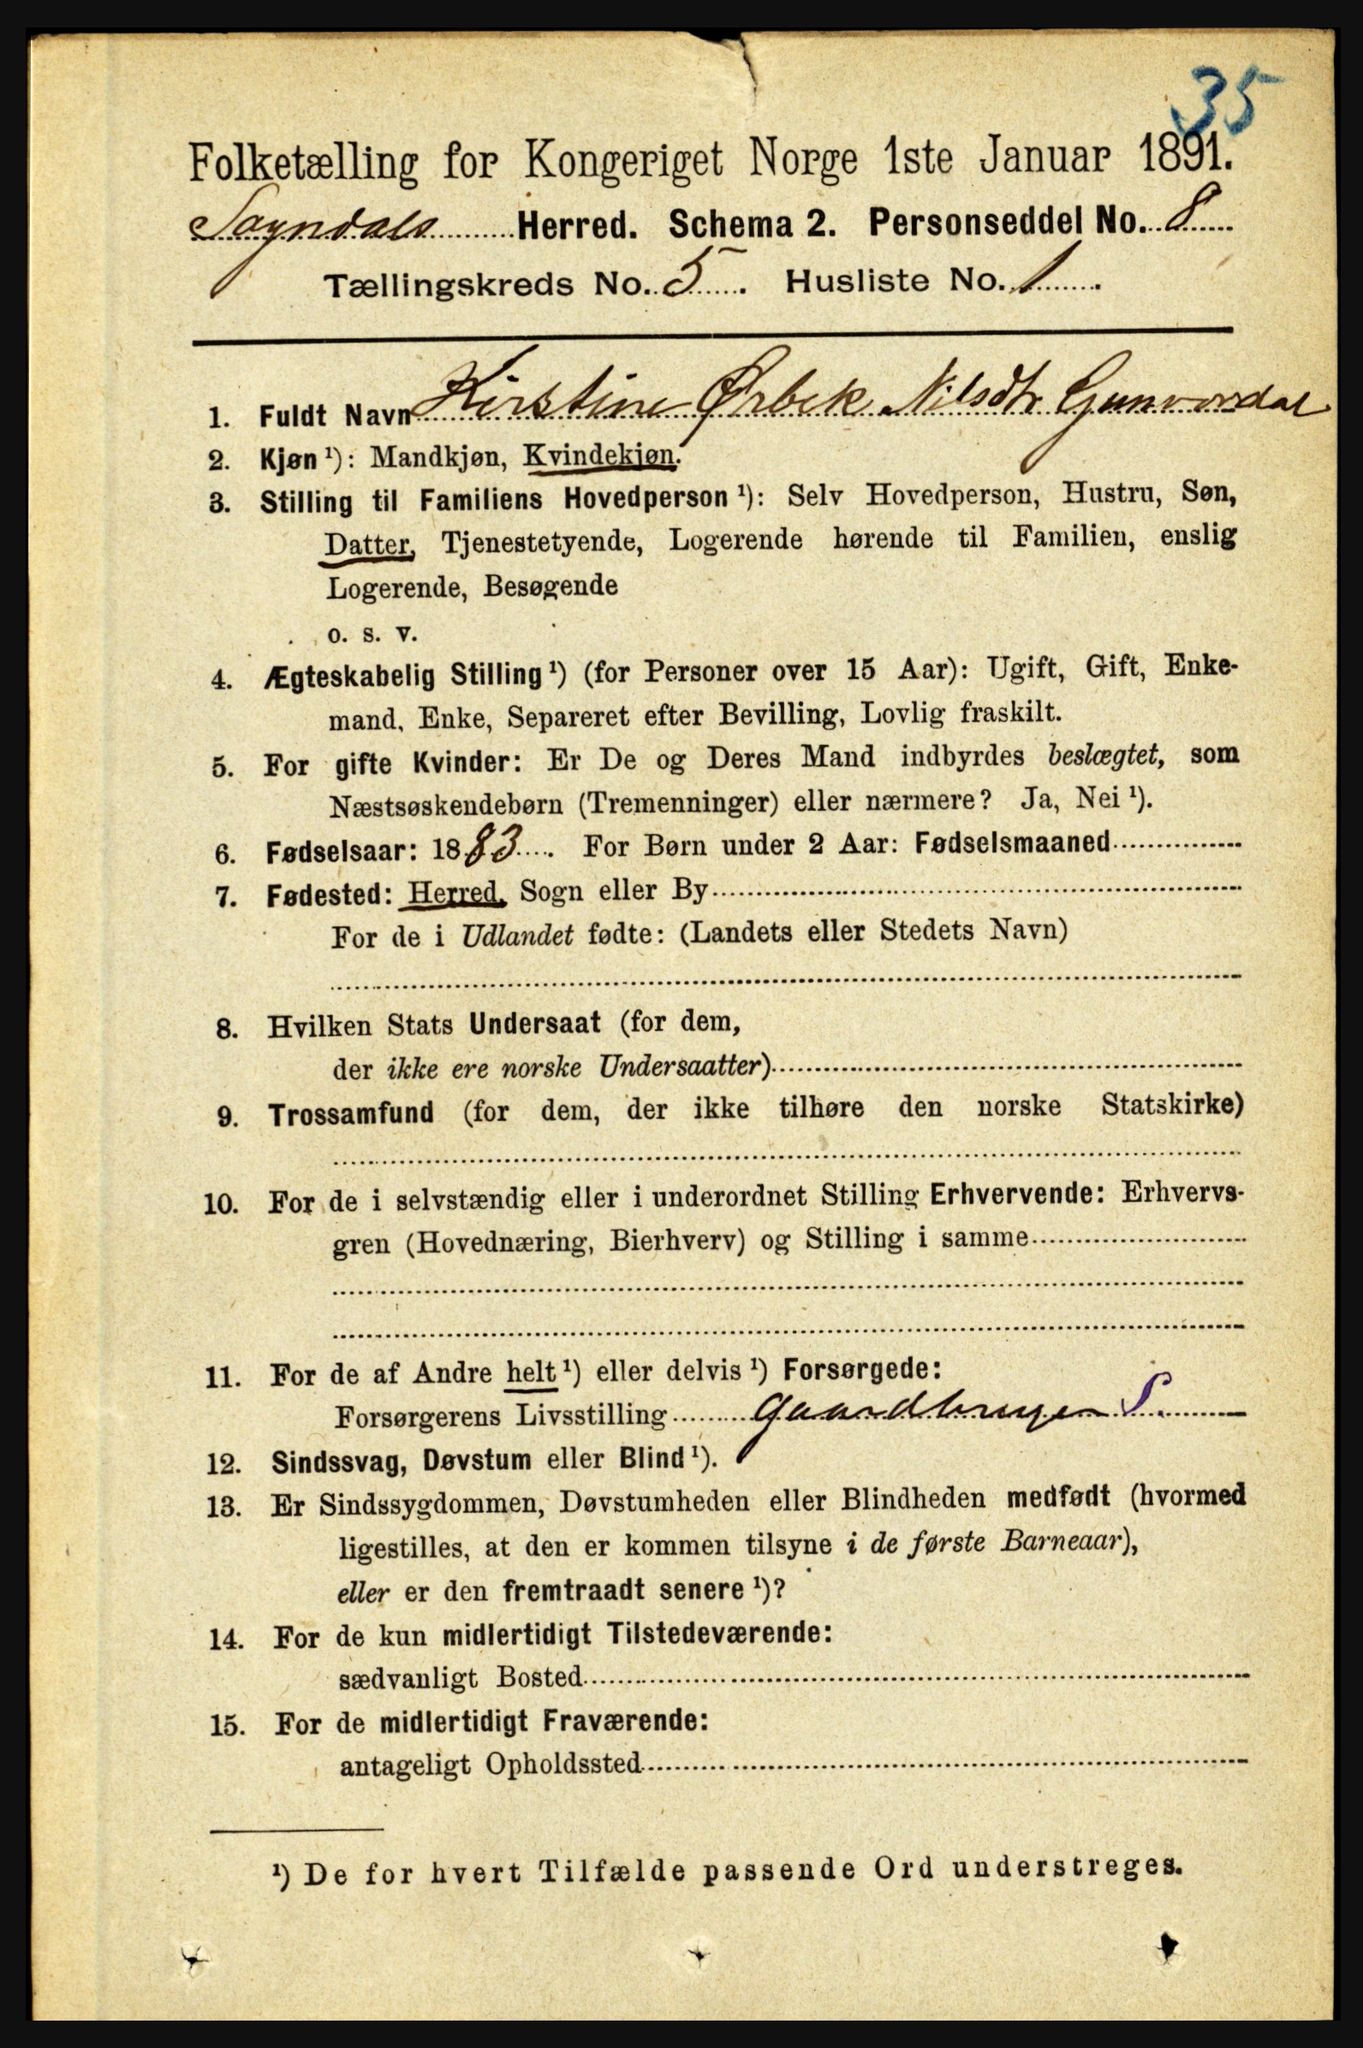 35
Folketælling for Kongeriget Norge 1ste Januar 1891.
Sogndals Herred. Schema 2. Personseddel No. 8
Tællingskreds No. 5. Husliste No. 1.
1. Fuldt Navn Kirstine Ørbek Nilsdtr Gunvordal
2. Kjøn ¹): Mandkjøn, Kvindekjøn.
3. Stilling til Familiens Hovedperson ¹): Selv Hovedperson, Hustru, Søn,
Datter, Tjenestetyende, Logerende hørende til Familien, enslig
Logerende, Besøgende
o. s. v.
4. Ægteskabelig Stilling ¹) (for Personer over 15 Aar): Ugift, Gift, Enke-
mand, Enke, Separeret efter Bevilling, Lovlig fraskilt.
5. For gifte Kvinder: Er De og Deres Mand indbyrdes beslægtet, som
Næstsøskendebørn (Tremenninger) eller nærmere? Ja, Nei ¹).
6. Fødselsaar: 1883. For Børn under 2 Aar: Fødselsmaaned
7. Fødested: Herred, Sogn eller By
For de i Udlandet fødte: (Landets eller Stedets Navn)
8. Hvilken Stats Undersaat (for dem,
der ikke ere norske Undersaatter)
9. Trossamfund (for dem, der ikke tilhøre den norske Statskirke)
10. For de i selvstændig eller i underordnet Stilling Erhvervende: Erhvervs-
gren (Hovednæring, Bierhverv) og Stilling i samme
11. For de af Andre helt ¹) eller delvis ¹) Forsørgede:
Forsørgerens Livsstilling Gaardbruger S.
12. Sindssvag, Døvstum eller Blind ¹).
13. Er Sindssygdommen, Døvstumheden eller Blindheden medfødt (hvormed
ligestilles, at den er kommen tilsyne i de første Barneaar),
eller er den fremtraadt senere ¹)?
14. For de kun midlertidigt Tilstedeværende:
sædvanligt Bosted
15. For de midlertidigt Fraværende:
antageligt Opholdssted
¹) De for hvert Tilfælde passende Ord understreges.